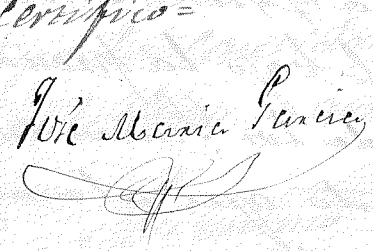 Certifico=
José Maria Garcia